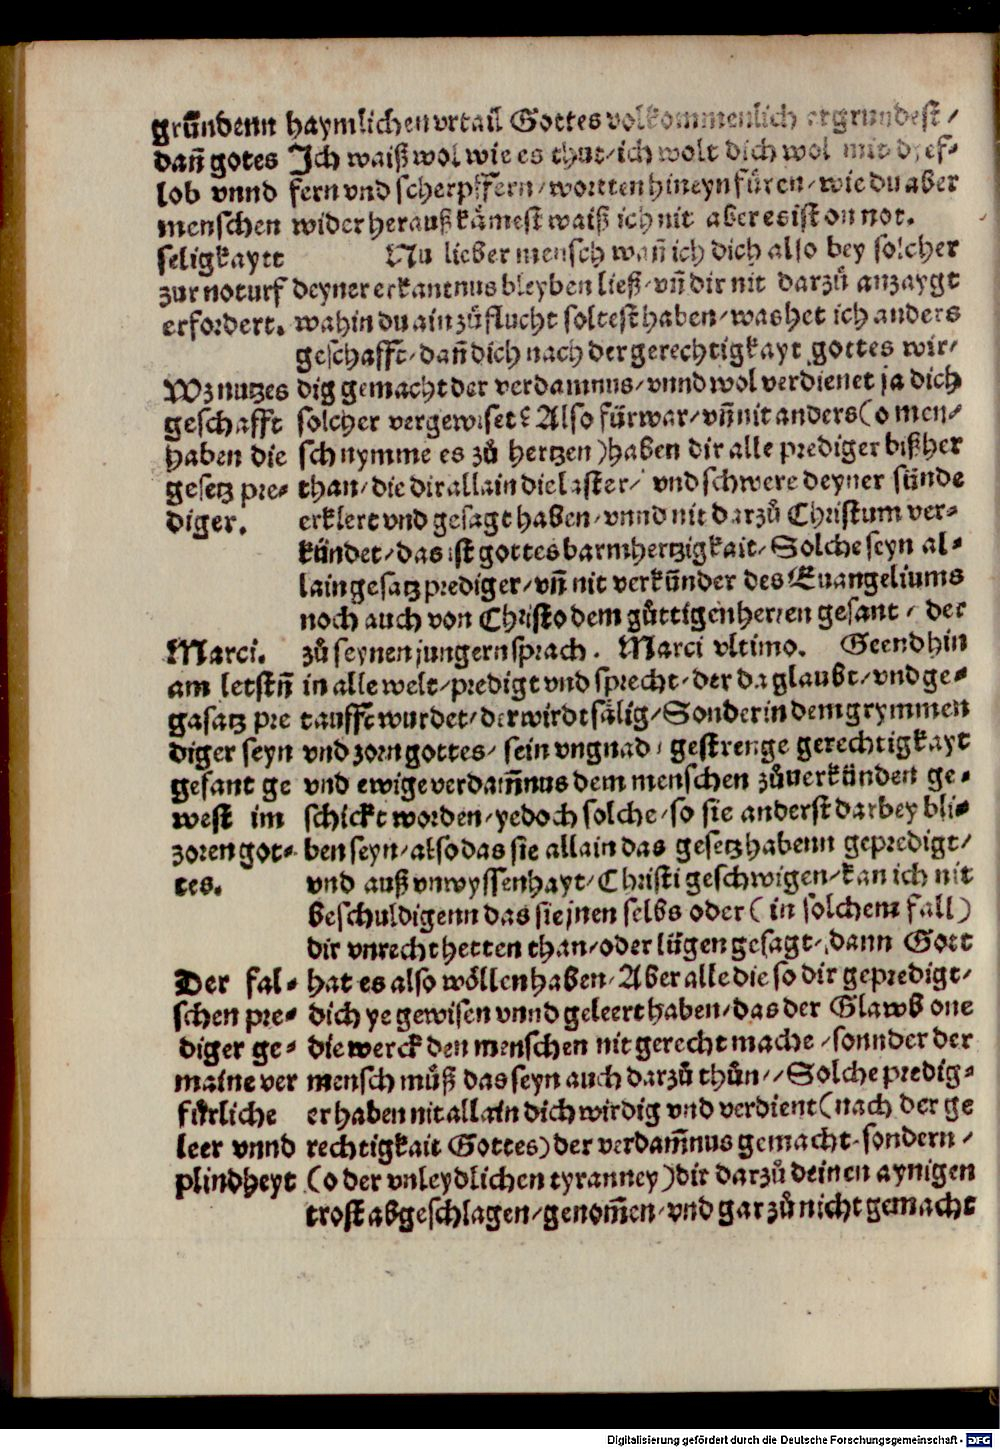 gründenn
dañ gotes
lob vnnd
menschen
seligkaytt
zur noturf
erfordert.
haymlichen vrtail Gottes volkommenlich ergrundest/
Jch waiß wol wie es thut/ich wolt dich wol mit dyef-
fern vnd scherpffern/wortten hineyn füren/wie du aber
wider herauß kämest waiß ich nit aber es ist on not.
Nu lieber mensch wañ ich dich also bey solcher
deyner erkantnus bleyben ließ/vñ dir nit darzů anzaygt
wahin du ain zůflucht soltest haben/was het ich anders
geschafft/dañ dich nach der gerechtigkayt gottes wir/
Wz nutzes
geschafft
haben die
gesetz pre-
diger.
dig gemacht der verdamnus/vnnd wol verdienet ja dich
solcher vergewiset? Also fürwar/vñ nit anders (o men/
sch nymme es zů hertzen) haben dir alle prediger bißher
than/die dir allain die laster/ vnd schwere deyner sünde
erklert vnd gesagt haben/vnnd nit darzů Christum ver-
kündet/das ist gottes barmhertzigkait/Solche seyn al-
lain gesatz prediger/vñ nit verkünder des Euangeliums
noch auch von Christo dem gůttigen herren gesant/ der
Marci.
am letstñ
gasatz pre
diger seyn
gesant ge
west im
zoren got-
tes.
zů seynen jungern sprach. Marci vltimo. Geend hin
in alle welt/predigt vnd sprecht/der da glaubt/vnd ge-
taufft wurdet/der wirdt sälig/Sonder in dem grymmen
vnd zorn gottes/ sein vngnad/ gestrenge gerechtigkayt
vnd ewige verdam̃nus dem menschen zůuerkünden ge-
schickt worden/yedoch solche/so sie anderst darbey bli-
ben seyn/also das sie allain das gesetz habenn gepredigt/
vnd auß vnwyssenhayt/Christi geschwigen/kan ich nit
beschuldigenn das sie jnen selbs oder (in solchem fall)
dir vnrecht hetten than/oder lügen gesagt/dann Gott
Der fal-
schen pre-
diger ge-
maine ver
fürliche
leer vnnd
plindheyt
hat es also wöllen haben/Aber alle die so dir gepredigt/
dich ye gewisen vnnd geleert haben/das der Glawb one
die werck den menschen nit gerecht mache/sonnder der
mensch můß das seyn auch darzů thůn//Solche predig-
er haben nit allain dich wirdig vnd verdient (nach der ge
rechtigkait Gottes) der verdam̃nus gemacht/sondern/
(o der vnleydlichen tyranney) dir darzů deinen aynigen
trost abgeschlagen/genom̃en/vnd gar zů nicht gemacht
Digitalisierung gefördert durch die Deutsche Forschungsgemeinschaft - DFG